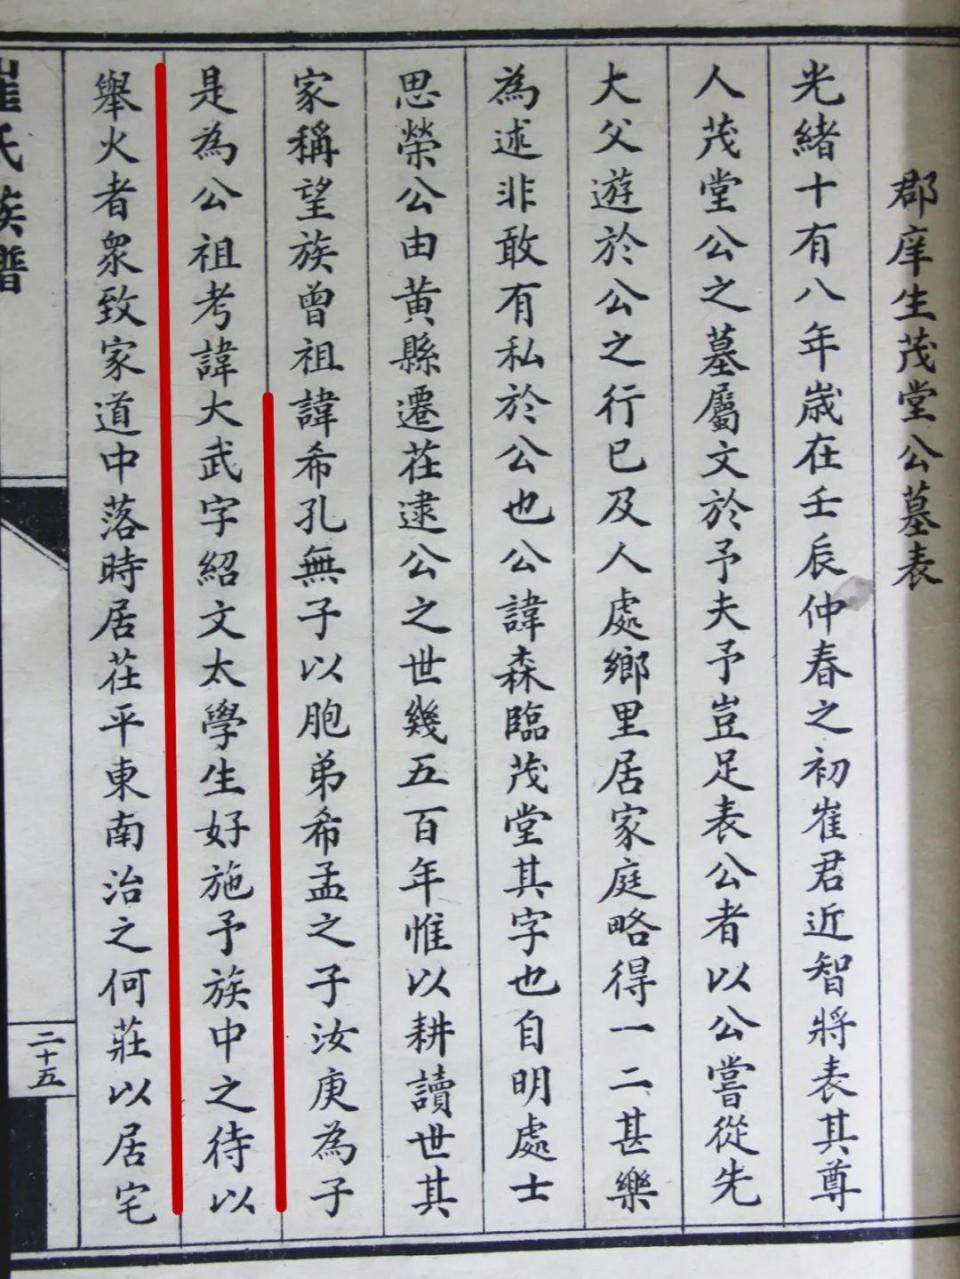 郡庠生茂堂公墓表
光緒十有八年歲在壬辰仲春之初崔君近智將表其尊
人茂堂公之墓屬文於予夫予豈足表公者以公嘗從先
大父遊於公之行已及人處鄉里居家庭略得一二甚樂
為述非敢有私於公也公諱森臨茂堂其字也自明處士
思榮公由黃縣遷茌逮公之世幾五百年惟以耕讀世其
家稱望族曾祖諱希孔無子以胞弟希孟之子汝庚為子
是為公祖考諱大武字紹文太學生好施予族中之待以
舉火者眾致家道中落時居茌平東南治之何莊以居宅
崔氏族譜
二十五